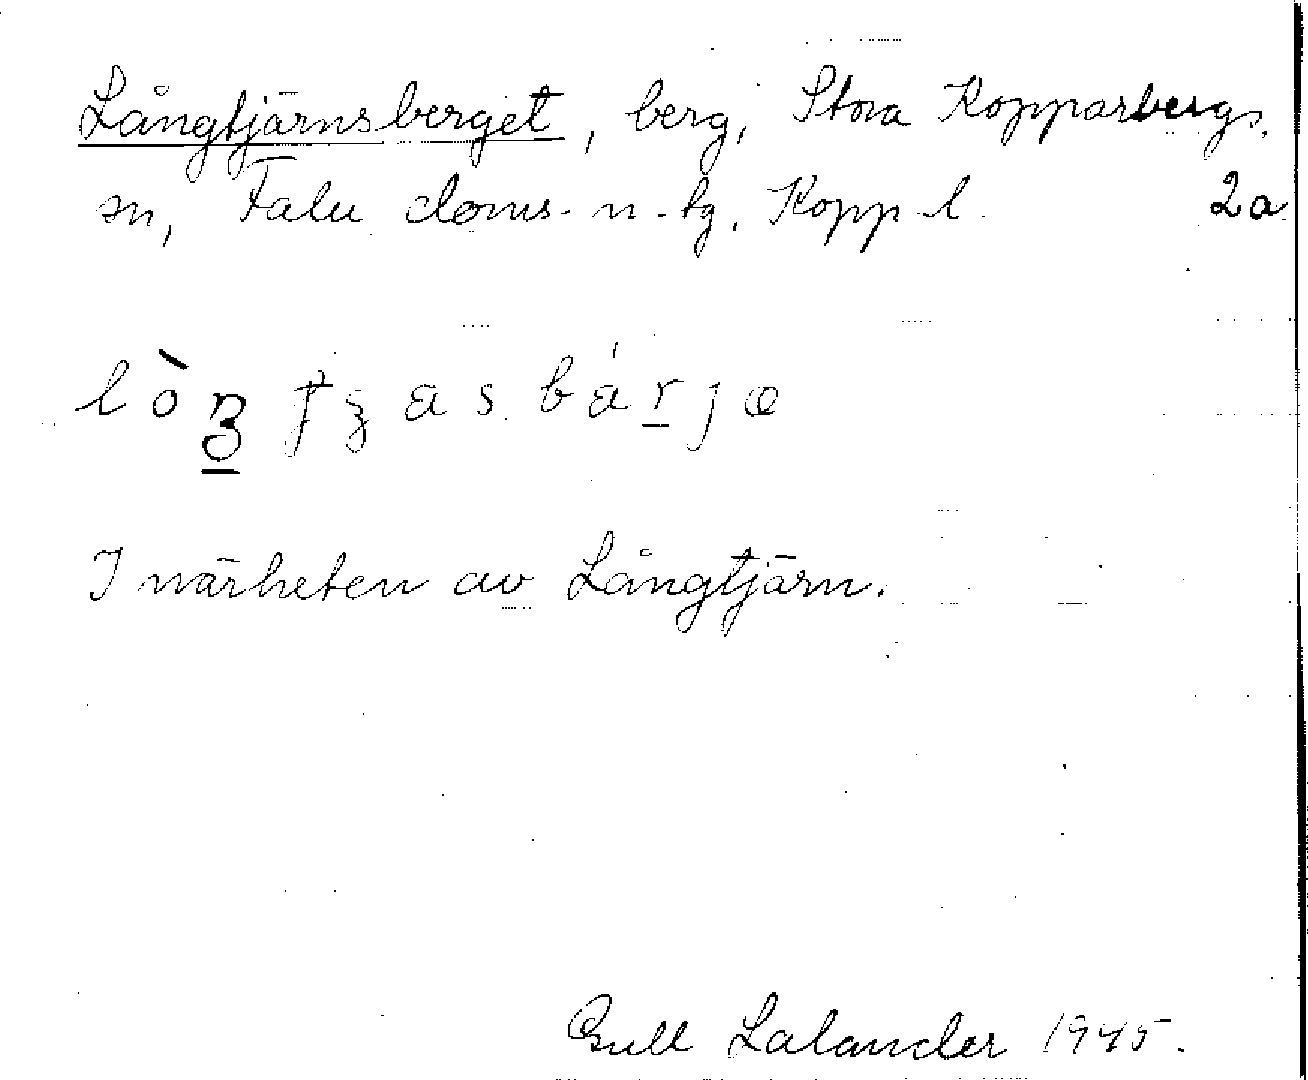 Långtjärnsberget, berg, Stora Kopparbergs
sn, Falu doms. n. tg. Kopp l. 2a
I närheten av Långtjärn.
Gull Lalander 1945.